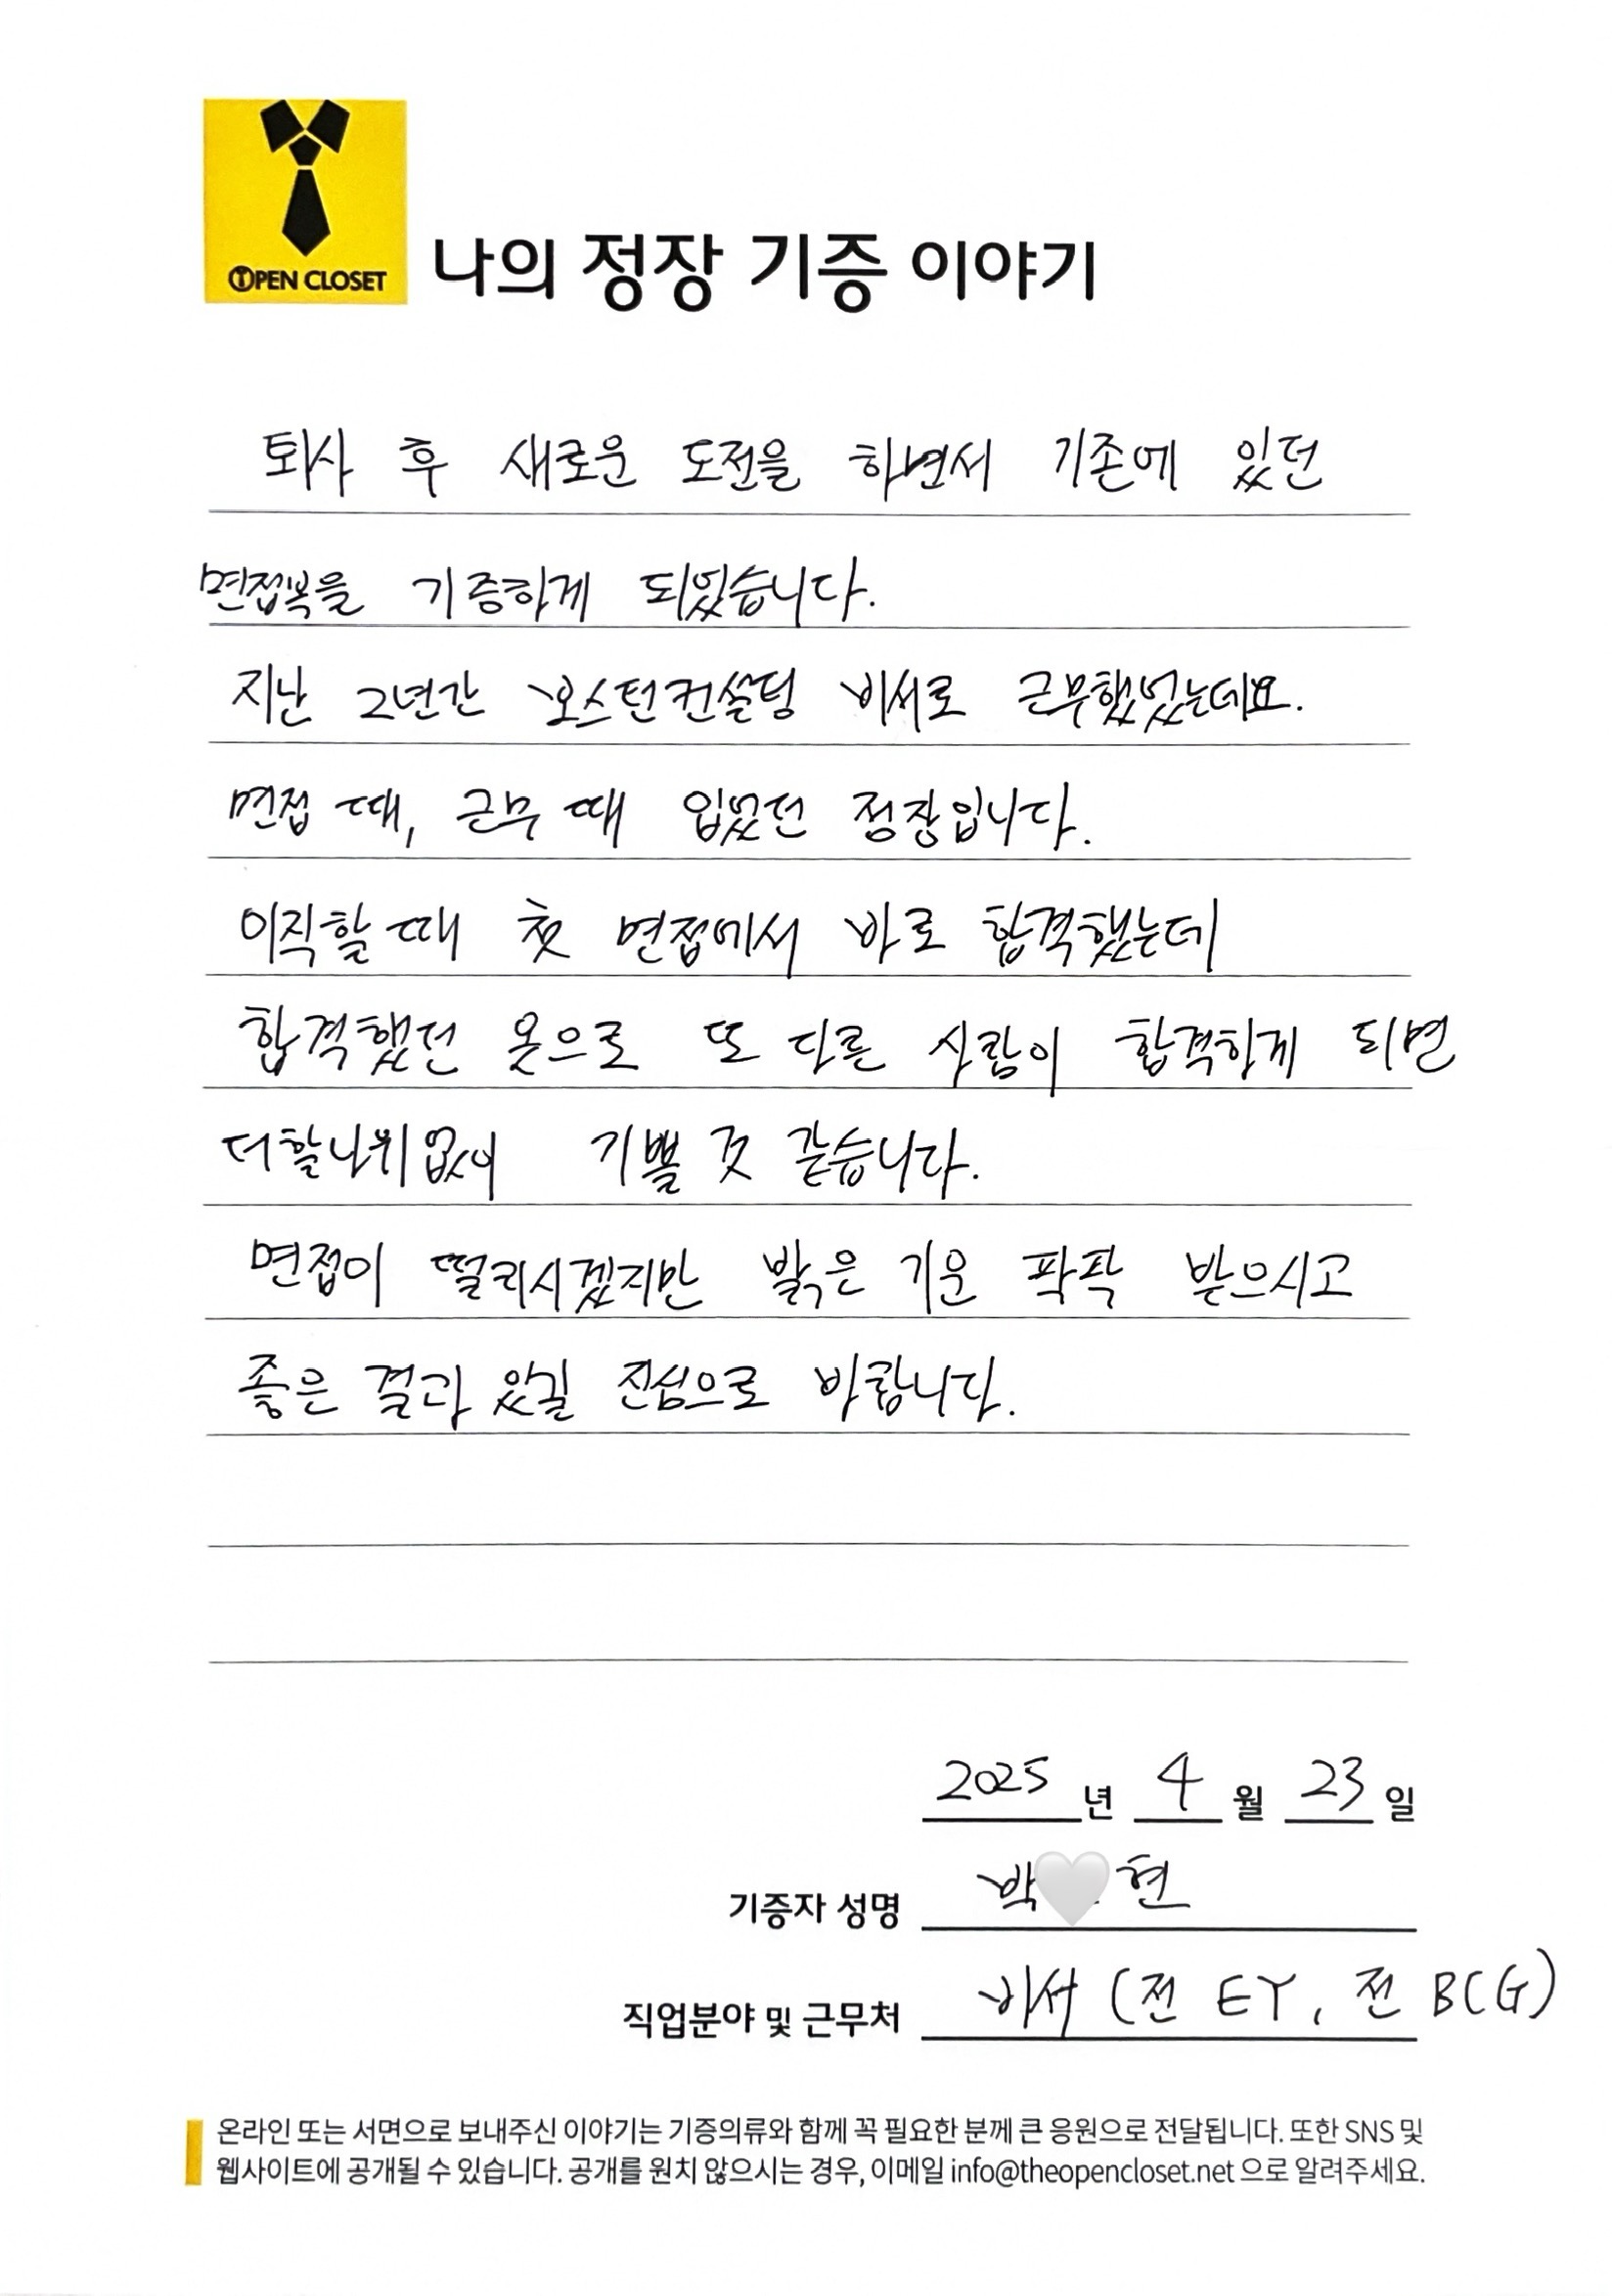 OPEN CLOSET
나의 정장 기증 이야기
퇴사 후 새로운 도전을 하면서 기존에 있던
면접복을 기증하게 되었습니다.
지난 2년간 보스턴컨설팅 비서로 근무했었는데요.
면접 때, 근무 때 입었던 정장입니다.
이직할 때 첫 면접에서 바로 합격했는데
합격했던 옷으로 또 다른 사람이 합격하게 되면
더할나위없이 기쁠 것 같습니다.
면접이 떨리시겠지만 밝은 기운 팍팍 받으시고
좋은 결과 있길 진심으로 바랍니다.
2025 년 4 월 23 일
기증자 성명 박 현
직업분야 및 근무처 비서 (전 EY, 전 BCG)
온라인 또는 서면으로 보내주신 이야기는 기증의류와 함께 꼭 필요한 분께 큰 응원으로 전달됩니다. 또한 SNS 및
웹사이트에 공개될 수 있습니다. 공개를 원치 않으시는 경우, 이메일 info@theopencloset.net 으로 알려주세요.